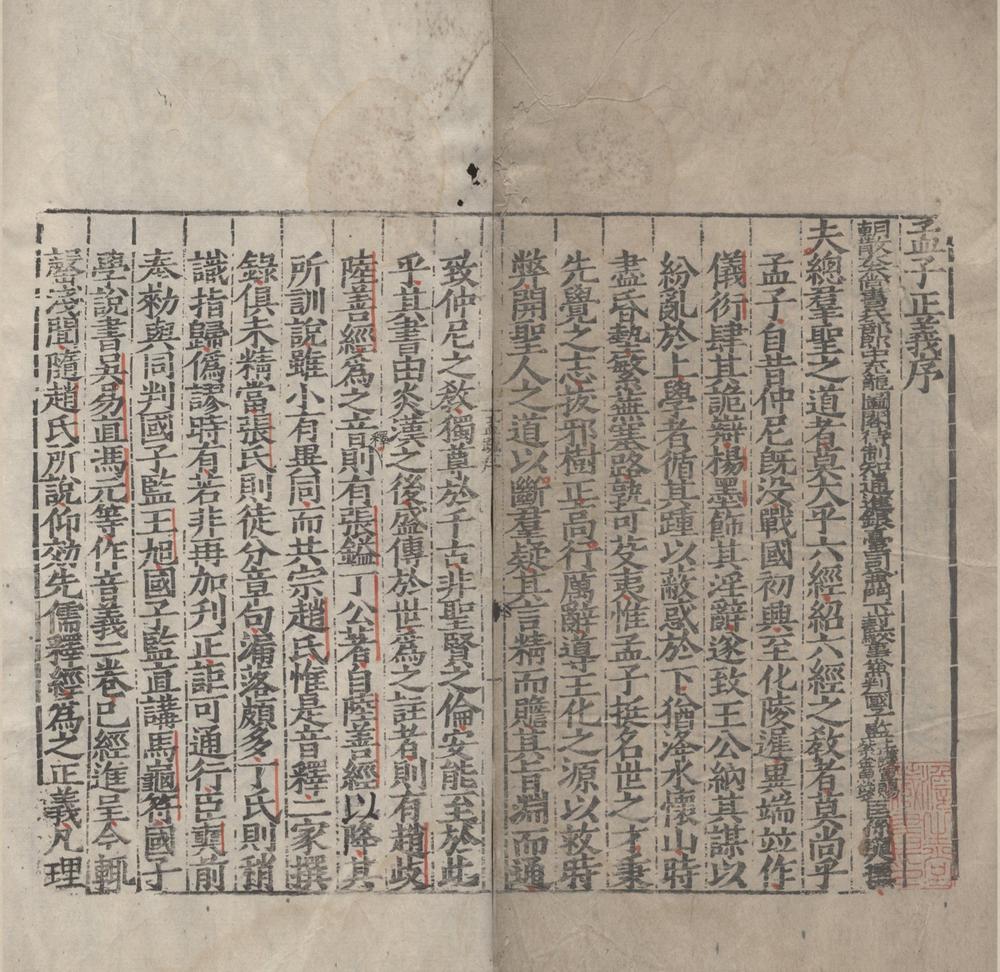 孟子正義序
朝散大夫尚書兵部郎中充龍圖閣待制知通進銀臺司兼門下封駁事兼判國子監上護軍賜紫金魚袋臣孫奭撰
夫總羣聖之道者莫大乎六經紹六經之教者莫尚乎
孟子自昔仲尼旣没戰國初興至化陵遲異端並作
儀衍肆其詭辯楊墨飾其淫辭遂致王公納其謀以
紛亂於上學者循其踵以蔽惑於下猶洚水懷山時
盡昏墊繁蕪塞路孰可芟夷惟孟子挺名世之才秉
先覺之志拔邪樹正高行厲辭導王化之源以救時
弊開聖人之道以斷羣疑其言精而贍其旨淵而通
致仲尼之教獨尊於千古非聖賢之倫安能至於此
乎其書由炎漢之後盛傳於世爲之註者則有趙岐
陸善經爲之音釋則有張鎰丁公著自陸善經以降其
所訓說雖小有異同而共宗趙氏惟是音釋二家撰
錄俱未精當張氏則徒分章句漏落頗多丁氏則稍
識指歸僞謬時有若非再加刊正詎可通行臣奭前
奉勑與同判國子監王旭國子監直講馬龜符國子
學說書吳易直馮元等作音義二卷已經進呈今輒
罄淺聞隨趙氏所說仰効先儒釋經爲之正義凡理